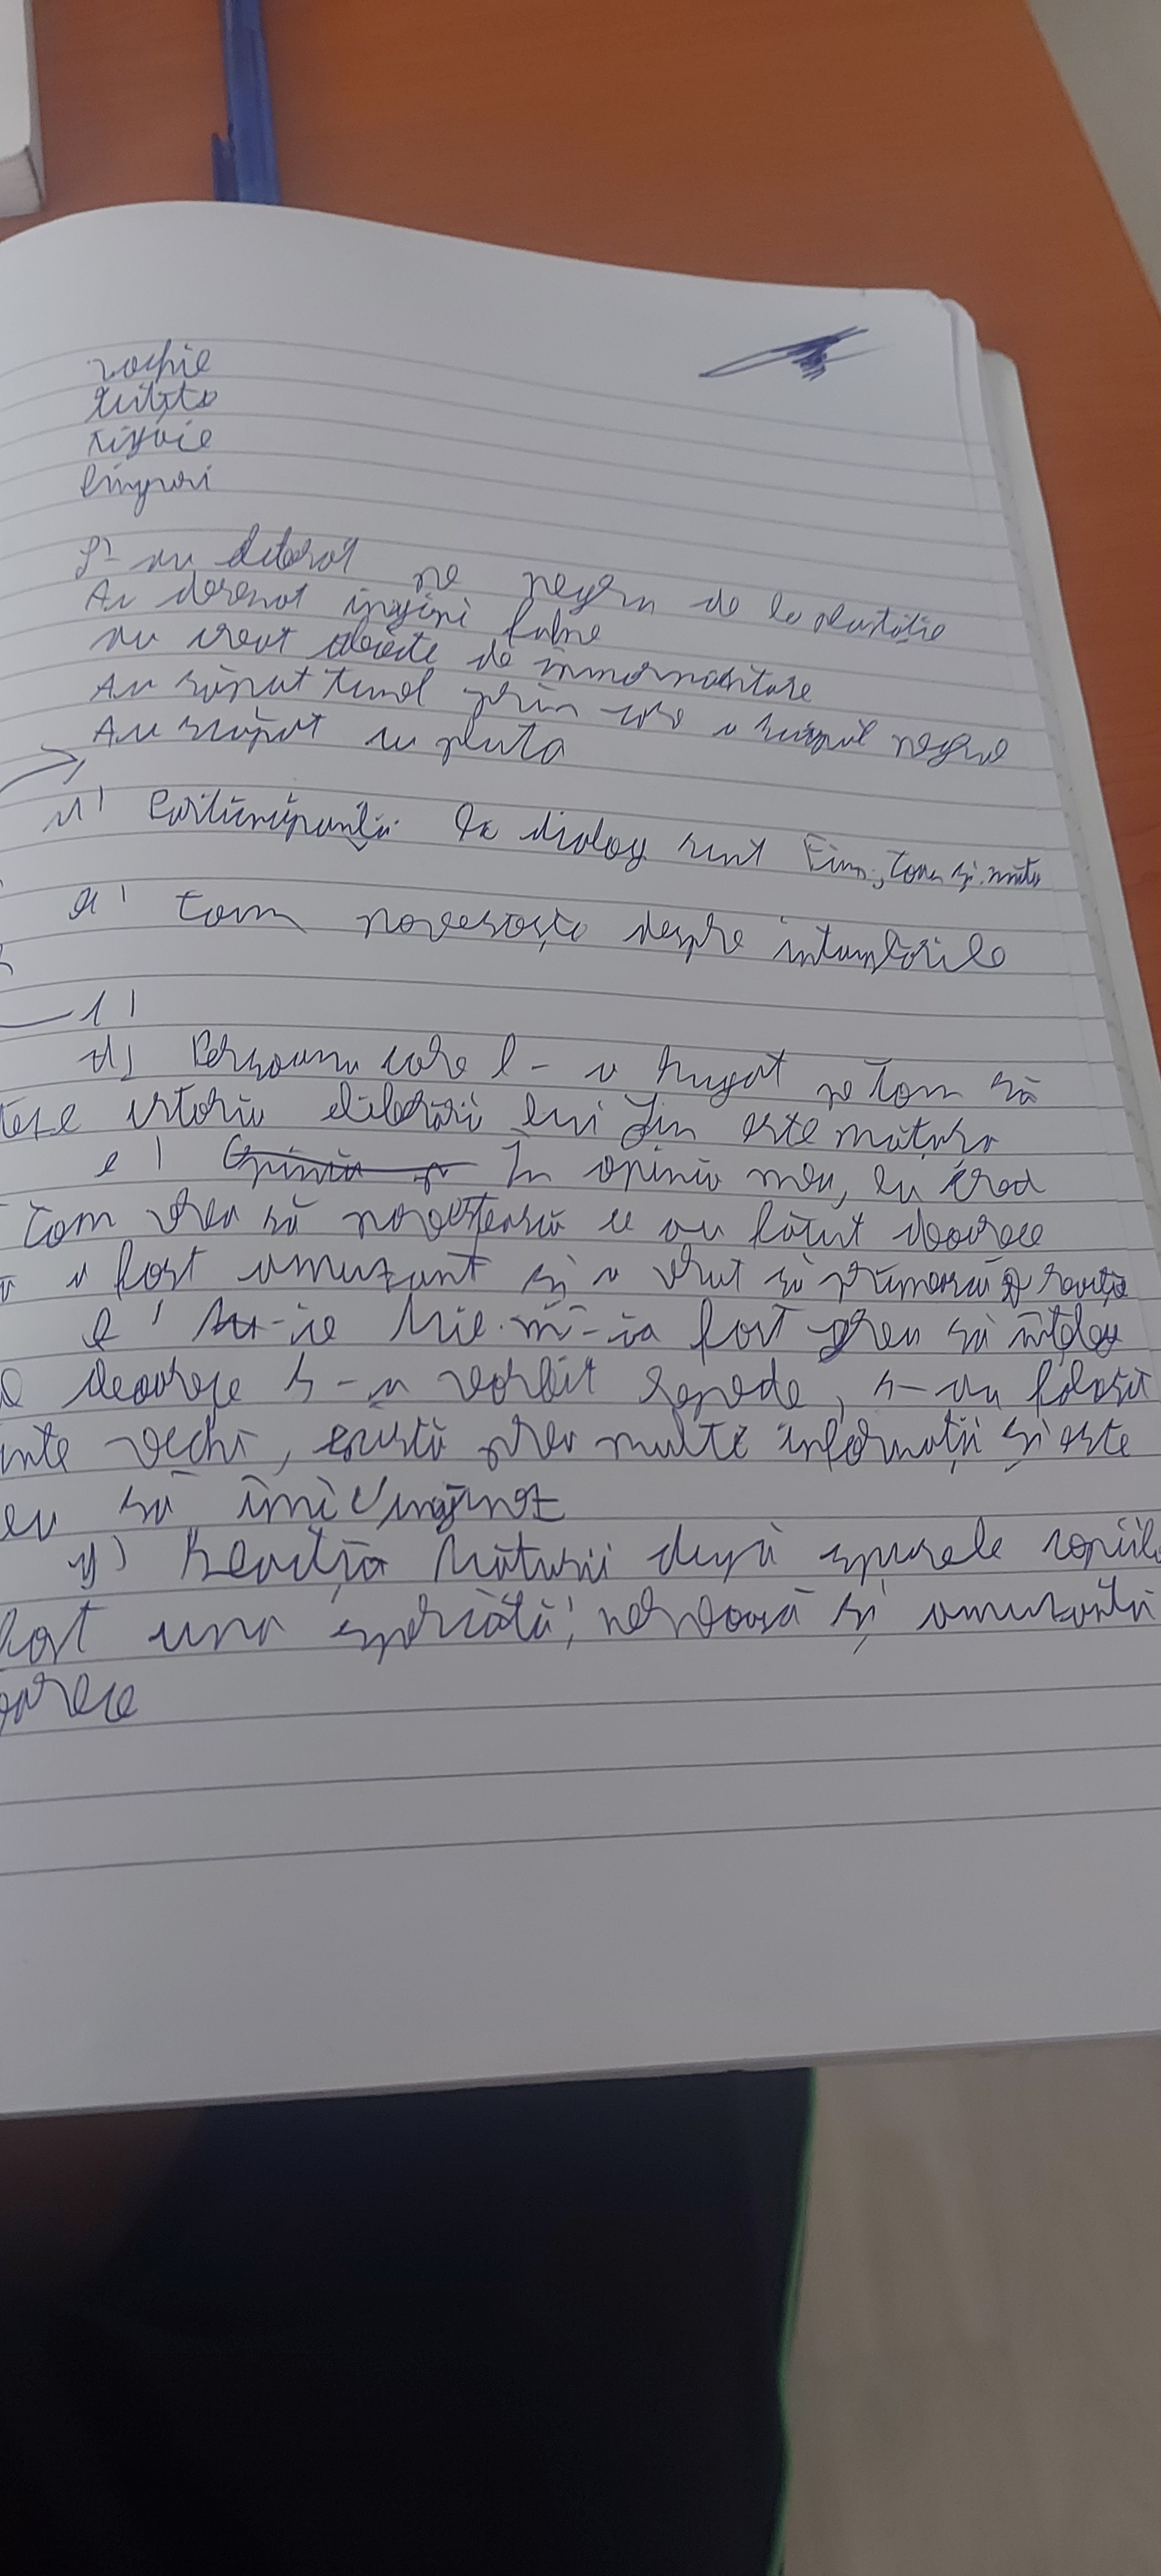 rochie
cuțite
linguri
L-au eliberat pe negru de la plantație
Au desenat
au creat obiecte de înmormântare
Au săpat tunel prin care a scăpat negrul
Au scăpat cu pluta
Participanții la dialog sunt Finn, Tom și mătu
Tom povestește despre întâmplările
1)
d) Persoana care l-a rugat pe Tom să
istoria eliberări lui Jim este mătușa
e) În opinia mea, eu cred
Tom vrea să povestească ce au făcut deoarece
a fost amuzant și a vrut să primească reacția
Mie mi-ia fost greu să înțeleg
deoarece s-a vorbit repede, s-au folosit
inte vechi, există prea multe informații și este
eu să îmi
g) Reacția Mătușii după spusele copiilo
fost una speriată, nervoasă și amuzantă
oarece